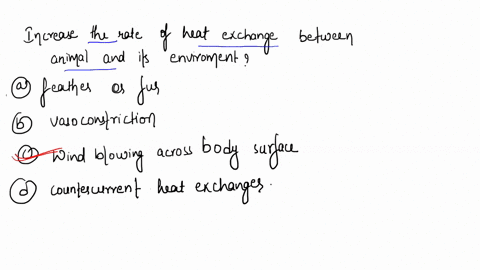 Increase the rate of heat exchange between
animal and its enviroment?
(a) feather or fur
(b) vasoconstriction
(c) wind blowing across body surface
(d) countercurrent heat exchanges.